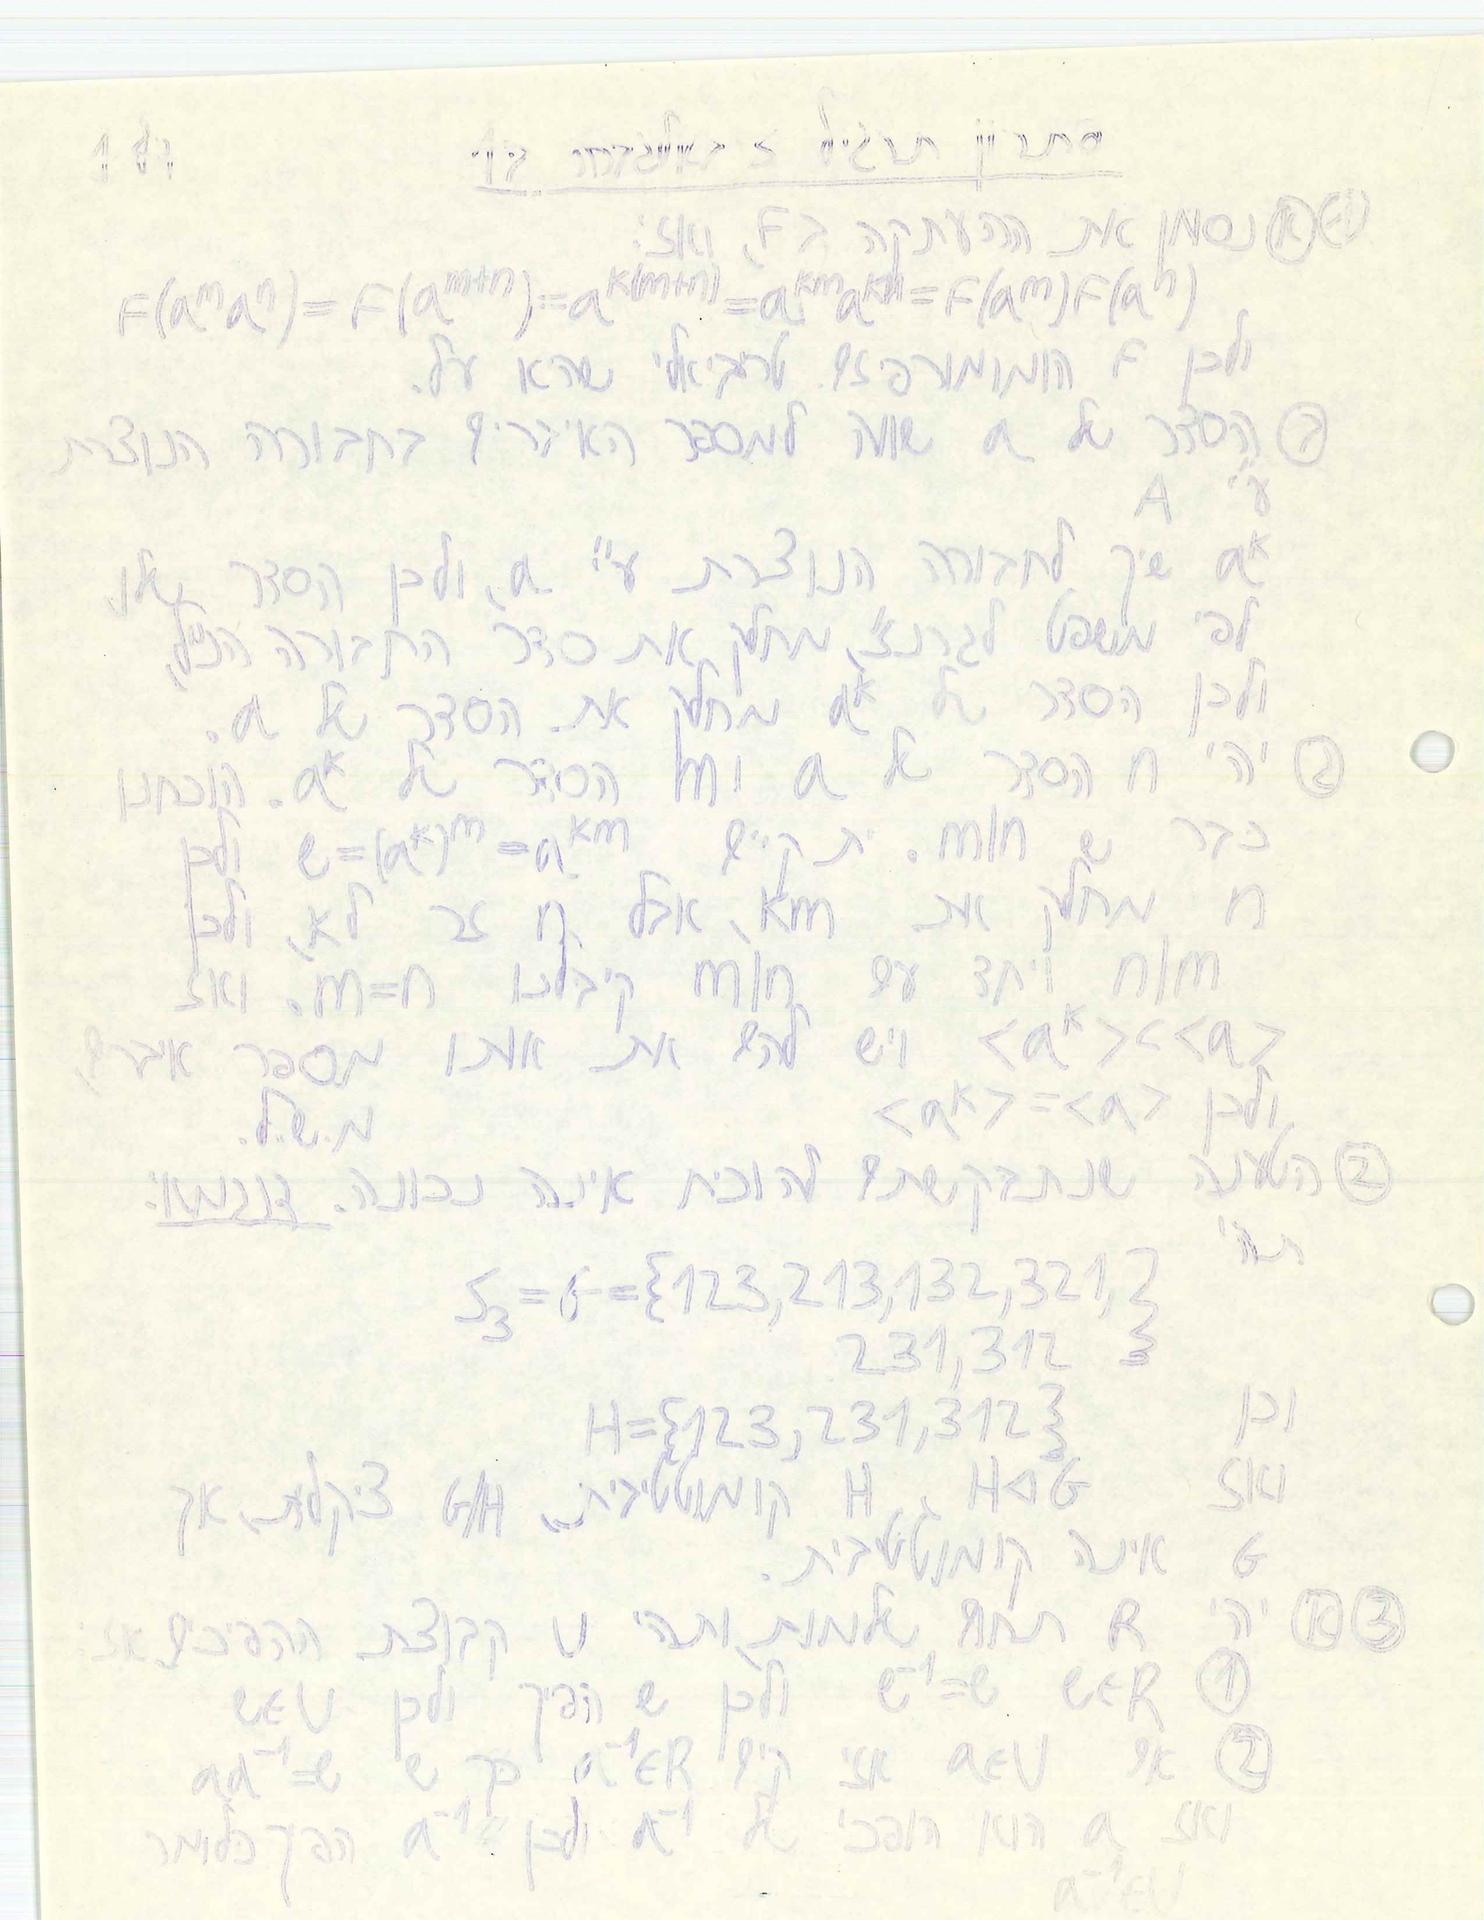 פתרון תרגיל 5 באלגברה ב1 דף 1
① א נסמן את ההעתקה בF, ואז:
F(aᵐaⁿ)=F(aᵐ⁺ⁿ)=aᵏ⁽ᵐ⁺ⁿ⁾=aᵏᵐaᵏⁿ=F(aᵐ)F(aⁿ)
ולכן F הומומורפיזם. טריביאלי שהא על.
ב הסדר של a שווה למספר האיברים בחבורה הנוצרת
ע"י A
aᵏ שיך לחבורה הנוצרת ע"י a, ולכן הסדר שלו,
לפי משפט לגרנז', מחלק את סדר החבורה הנ"ל,
ולכן הסדר של aᵏ מחלק את הסדר של a.
ג יהי n הסדר של a ו m הסדר של aᵏ. הוכחנו
כבר ש m|n. יתקיים e=(aᵏ)ᵐ=aᵏᵐ ולכן
n מחלק את km, אבל n זר לk, ולכן
n|m ויחד עם m|n קיבלנו m=n. ואז
<aᵏ> < <a> ויש להם את אותו מספר איברים,
ולכן <aᵏ>=<a> מ.ש.ל.
② הטענה שנתבקשתם להוכיח אינה נכונה. דוגמא:
תהי
S₃=G={123,213,132,321,
231,312}
וכן H={123,231,312}
ואז H◁G, H קומוטטיבית, G/H ציקלית, אך
G אינה קומוטטיבית.
③ א יהי R תחום שלמות, ותהי U קבוצת ההפיכים, אז:
① e∈R e=e⁻¹ ולכן e הפיך ולכן e∈U
② אם a∈U אזי קים a⁻¹∈R כך ש e=aa⁻¹
ואז a הוא הופכי של a⁻¹ ולכן a⁻¹ הפיך כלומר
a⁻¹∈U